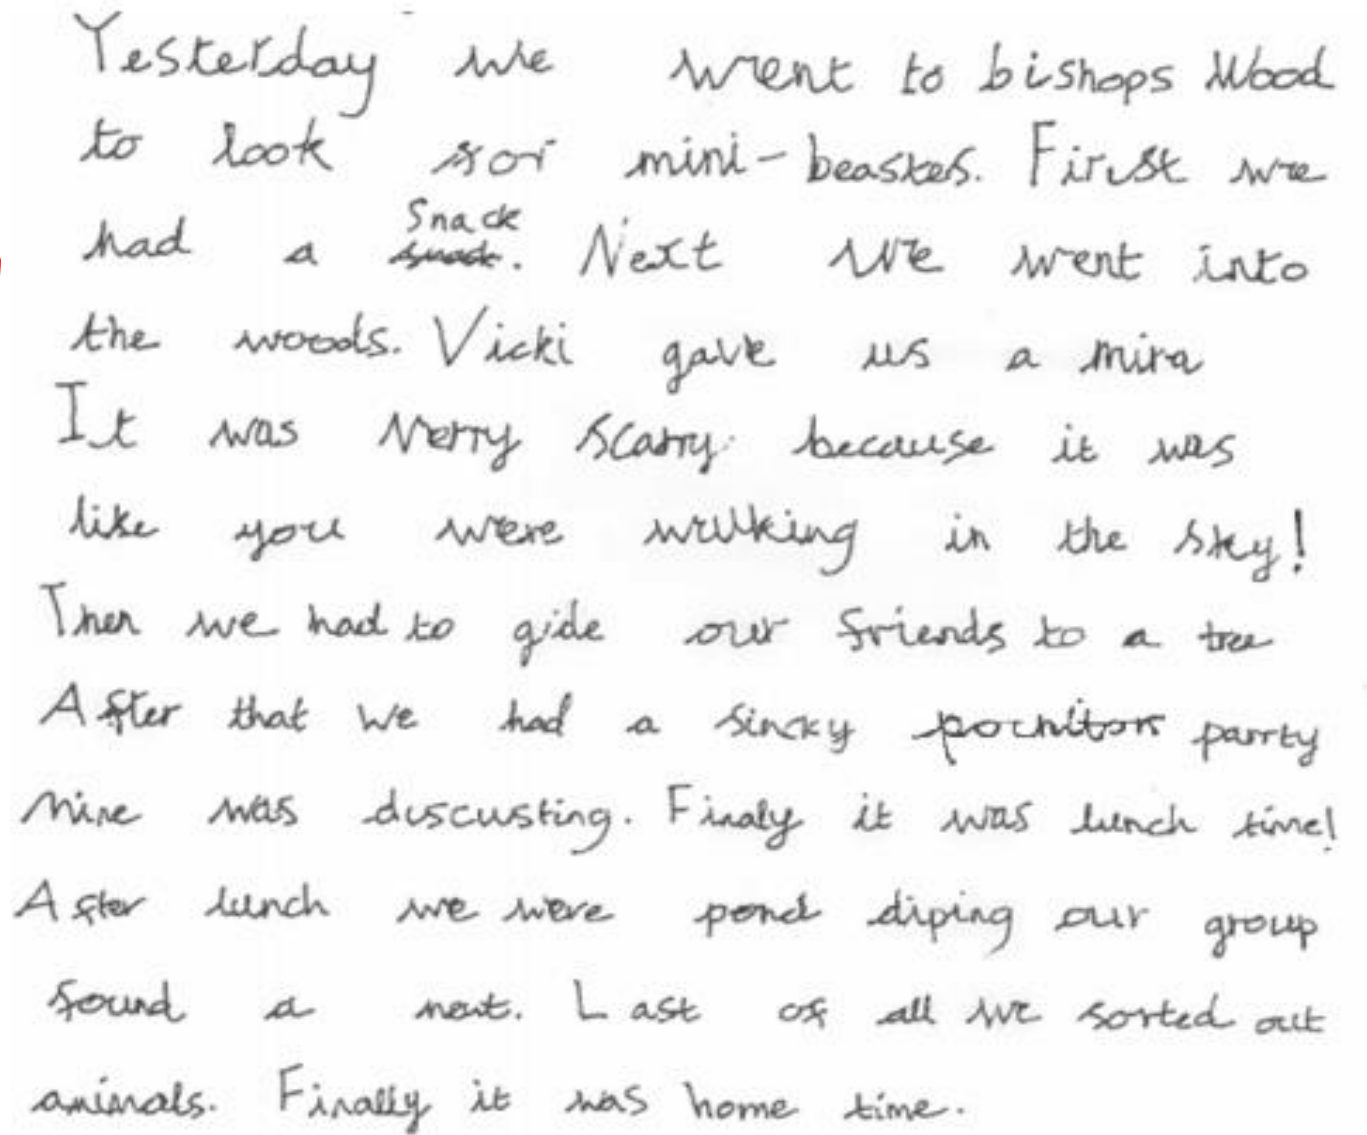 Yesterday we went to bishops Wood
to look for mini-beastes. First we
had a Snack. Next we went into
the woods. Vicki gave us a mira
It was verry scarry because it was
like you were walking in the sky!
Then we had to gide our friends to a tree
After that we had a sincky parrty
Mine was discusting. Finaly it was lunch time!
After lunch we were pond diping our group
found a newt. Last of all we sorted out
animals. Finally it was home time.